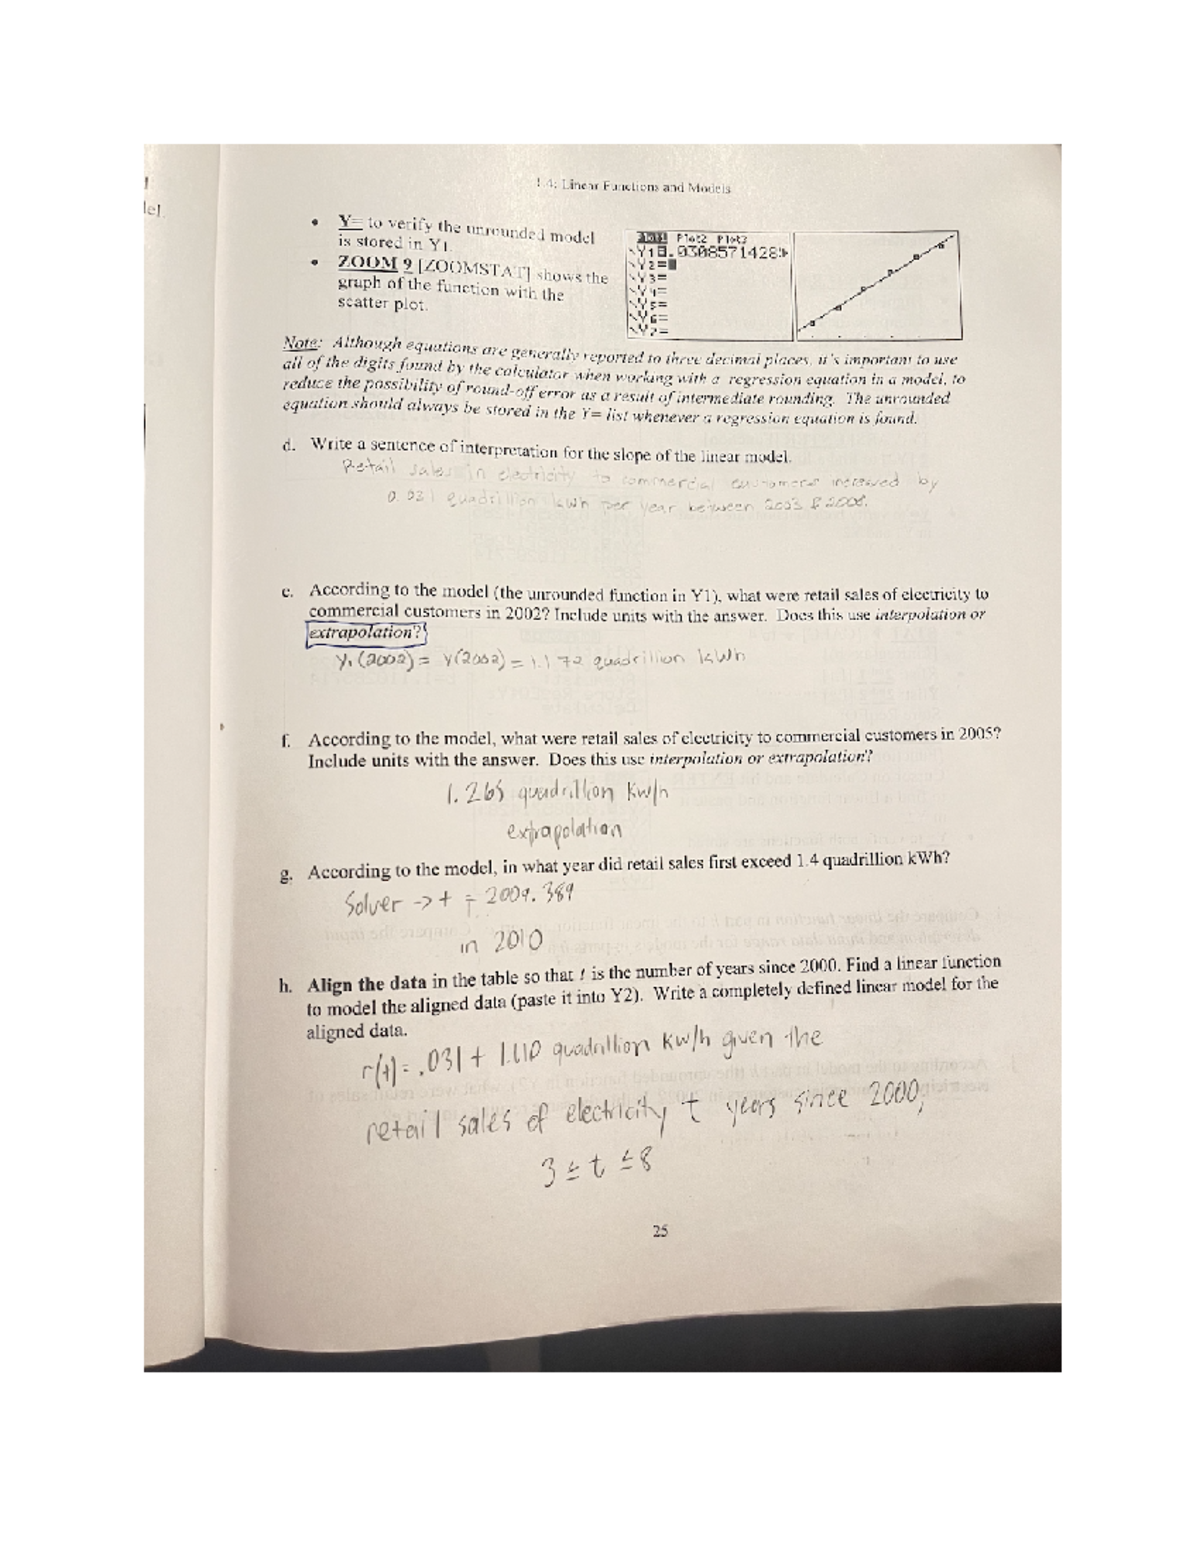 1.4: Linear Functions and Models
• Y= to verify the unrounded model
is stored in Y1.
• ZOOM 9 [ZOOMSTAT] shows the
graph of the function with the
scatter plot.
Plot1 Plot2 Plot3
\Y1=.0308571428
\Y2=
\Y3=
\Y4=
\Y5=
\Y6=
\Y7=
Note: Although equations are generally reported to three decimal places, it's important to use
all of the digits found by the calculator when working with a regression equation in a model, to
reduce the possibility of round-off error as a result of intermediate rounding. The unrounded
equation should always be stored in the Y= list whenever a regression equation is found.
d. Write a sentence of interpretation for the slope of the linear model.
Retail sales in electricity to commercial customers increased by
0.031 quadrillion kWh per year between 2003 & 2008.
e. According to the model (the unrounded function in Y1), what were retail sales of electricity to
commercial customers in 2002? Include units with the answer. Does this use interpolation or
extrapolation?
Y1(2002) = Y(2002) = 1.172 quadrillion kWh
f. According to the model, what were retail sales of electricity to commercial customers in 2005?
Include units with the answer. Does this use interpolation or extrapolation?
1.265 quadrillion Kw/h
extrapolation
g. According to the model, in what year did retail sales first exceed 1.4 quadrillion kWh?
Solver -> t = 2009.389
in 2010
h. Align the data in the table so that t is the number of years since 2000. Find a linear function
to model the aligned data (paste it into Y2). Write a completely defined linear model for the
aligned data.
r(t) = .031 + 1.110 quadrillion Kw/h given the
retail sales of electricity t years since 2000,
3 ≤ t ≤ 8
25